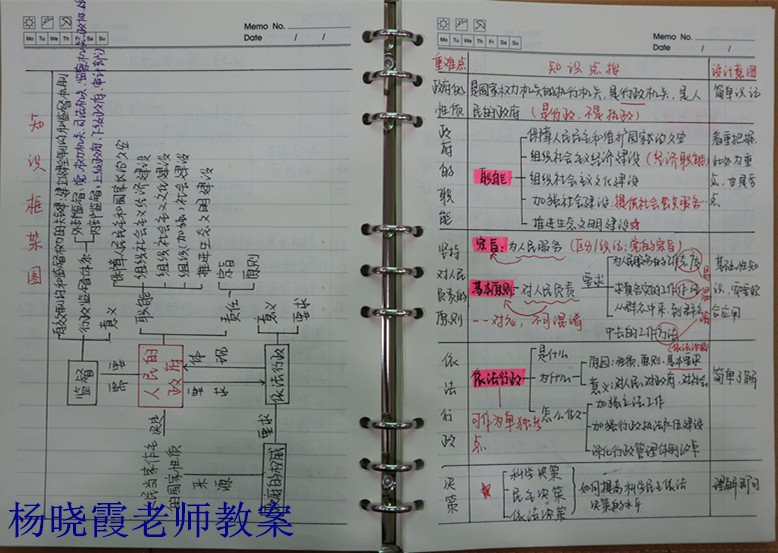 Memo No.
Mo Tu We Th Fr Sa Su
Date / /
知识框架图
意义
行政监督体系
监督
需要
人民的政府
职能
保障人民民主和国家长治久安
组织社会主义经济建设
组织社会主义文化建设
推进生态文明建设
责任
宗旨
原则
体现
要求
依法行政
意义
要求
来源
政府的权威
要求
杨晓霞老师教案
Memo No.
Mo Tu We Th Fr Sa Su
Date / /
重难点
知识点拨
设计意图
政府的性质
是国家权力机关的执行机关,是行政机关,是人
民的政府
简单识记
政府的职能
职能
保障人民民主和维护国家长治久安
组织社会主义经济建设(经济职能)
组织社会主义文化建设
加强社会建设,提供社会公共服务
推进生态文明建设
坚持对人民负责的原则
宗旨:为人民服务
基本原则
对人民负责
要求
为人民服务的工作态度
求真务实的工作作风
对比,不可混淆
依法行政
依法行政
是什么
为什么
意义:对人民、对政府、对社会
简单了解
怎么做
加强立法工作
加强行政执法队伍建设
深化行政管理体制改革
可作为单独考点
决策
科学决策
民主决策
依法决策
如何提高科学民主依法
决策的水平
理解即可